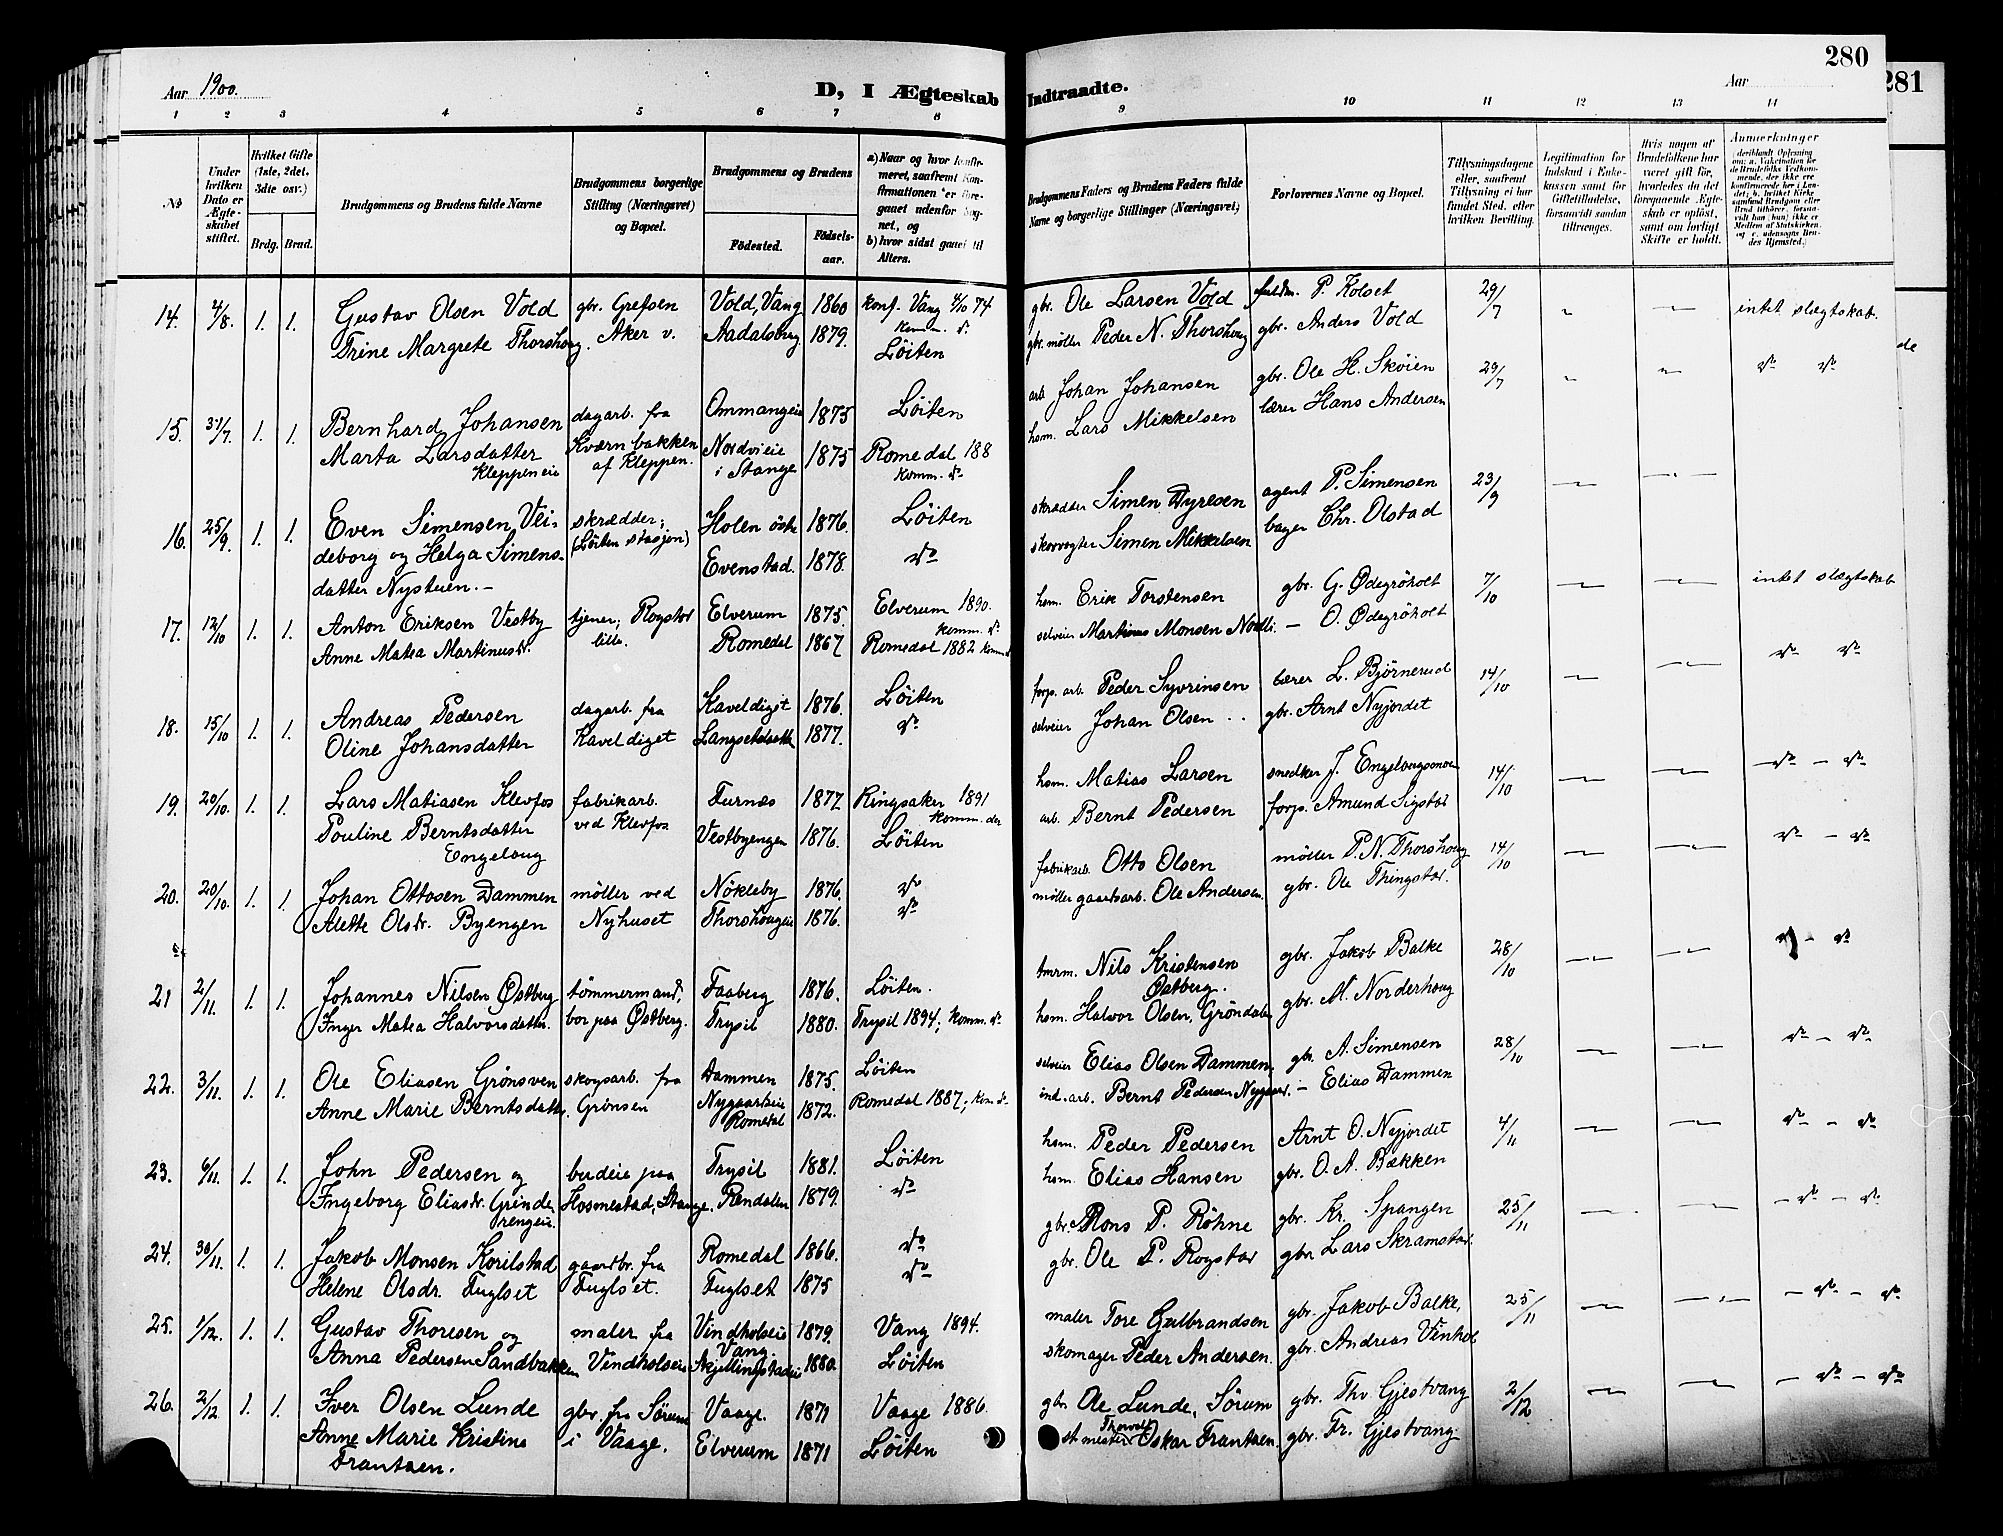 280
281
Aar 1900.
D, I Ægteskab Indtraadte.
Aar
1 2 3 4 5 6 7 8 9 10 11 12 13 14
No
Under hvilken Dato er Ægteskabet stiftet.
Hvilket Gifte (1ste, 2det, 3dte osv.)
Brdg. Brud.
Brudgommens og Brudens fulde Navne
Brudgommens borgerlige Stilling (Næringsvei) og Bopæl.
Brudgommens og Brudens
Fødested.
Fødselsaar.
a) Naar og hvor konfirmeret, saafremt Konfirmationen er foregaaet udenfor Sognet, og
b) hvor sidst gaaet til Alters.
Brudgommens Faders og Brudens Faders fulde Navne og borgerlige Stillinger (Næringsvei)
Forlovernes Navne og Bopæl.
Tillysningsdagene eller, saafremt Tillysning ei har fundet Sted, efter hvilken Bevilling.
Legitimation for Indskud i Enkekassen samt for Giftetilladelse, forsaavidt saadan tiltrænges.
Hvis nogen af Brudefolkene har været gift før, hvorledes da det foregaaende Ægteskab er opløst, samt om lovligt Skifte er holdt.
Anmerkninger
14. 4/8. 1. 1. Gustav Olsen Vold gbr. Grefsen Vold, Vang 1860 konf. Vang 4/10 74 gbr. Ole Larsen Vold P. Kolset 29/7 intet slægtskab.
Trine Margrete Thorshoug. Aker v. Aadalsberg 1879. komm. do Löiten gbr. møller Peder N. Thorshoug gbr. Anders Vold
15. 31/7. 1. 1. Bernhard Johansen dagarb. fra Ommangeie 1875 Löiten arb. Johan Johansen gbr. Ole H. Skøien 29/7 do do
Marta Larsdatter Kværnbakken Nordvieie 1875 Romedal 188 hsm. Lars Mikkelsen lærer Hans Andersen
Kleppeneie af Kleppen. i Stange komm. do
16. 25/9. 1. 1. Even Simensen Vei- skrædder; Holen östr 1876. Löiten skrædder Simen Dyresen agent P. Simensen 23/9
deborg og Helga Simens- (Löiten stasjon) Evenstad. 1878. do skovvogter Simen Mikkelsen bager Chr. Olstad
datter Nystuen. -
17. 12/10 1. 1. Anton Eriksen Vestby tjener; Rogstad Elverum 1875. Elverum 1890. komm. do hsm. Erik Torstensen gbr. G. Ödegröholt 7/10 intet slægtskab
Anne Matea Martinusdr. lille. Romedal 1867 Romedal 1882 komm do selveier Martinus Monsen - O. Ödegröholt
18. 15/10 1. 1. Andreas Pedersen dagarb. fra Kaveldiget 1876. Löiten forp. arb. Peder Syvrinsen lærer L. Bjørnerud 14/10 do do
Oline Johansdatter Kaveldiget 1877. do selveier Johan Olsen gbr. Arnt Nyjordet
19. 20/10. 1. 1. Lars Matiasen Klevfos fabrikarb. Furnes 1877 Ringsaker 1891 hsm. Matias Larsen snedker J. 14/10 do - do
Pouline Berntsdatter ved Klevfos Vestbyengen 1876. komm. der Löiten arb. Bernt Pedersen forp. Amund Sigstad
Engelaug
20. 20/10. 1. 1. Johan Ottosen Dammen møller ved Nökleby 1876. do fabrikarb. Otto Olsen møller P. N. Thorshoug 14/10 do - do
Alette Olsdr. Byengen Nyhuset Thorshougeie 1876. do møller gaardsarb. Ole Andersen. gbr. Ole Thingstad.
21 2/11. 1. 1. Johannes Nilsen Østberg tömmermand, Faaberg 1876. Löiten. tmrm. Nils Kristensen Østberg. gbr. Jakob Balke 28/10 do
Inger Matea Halvorsdatter. bor paa Østberg. Trysil 1880. Trysil 1894; komm. do hsm. Halvor Olsen, Gröndalen gbr. M. Norderhoug
22. 3/11. 1. 1. Ole Eliasen Grönsven skogsarb. fra Dammen 1875. Löiten selveier Elias Olsen Dammen gbr. A. Simensen 28/10 do - do
Anne Marie Berntsdatter. Grönsen Nygaardseie Romedal 1872. Romedal 1887; kom. do ind. arb. Bernt Pedersen Nygaard. - Elias Dammen
23. 6/11. 1. 1. John Pedersen og budeie paa Trysil 1881. Löiten hsm. Peder Pedersen Arnt O. Nyjordet 4/11 do - do
Ingeborg Eliasdr. Grinde- Hosmestad, Stange. Rendalen 1879. do hsm. Elias Hansen gbr. O. A. Bækken
rengeie.
24. 30/11. 1. 1. Jakob Monsen Korilstad gaardbr. fra Romedal 1866. do gbr. Mons P. Røhne gbr. Kr. Spangen 25/11 - do - do
Helene Olsdr. Fuglset Fuglset. Fuglset 1875 do gbr. Ole P. Rogstad gbr Lars Skramstad.
25. 1/12. 1. 1. Gustav Thoresen og maler fra Vindholseie Vang. 1879. Vang 1894. maler Tore Gulbrandsen gbr. Jakob Balke, 25/11 - do - do
Anna Pedersen Sandbakken Vindholseie Skjellingstadeie 1880. Löiten skomager Peder Andersen. gbr. Andreas Vinhol
26. 2/12 1. 1. Iver Olsen Lunde gbr. fra Sørum Vaage. 1871 Vaage 1886. gbr Ole Lunde, Sörum gbr. Thv. Gjestvang 2/12 - do - do
Anne Marie Kristine i Vaage. Elverum 1871 Löiten st. mester Thorvald Oskar Frantzen. gbr. Fr. Gjestvang
Frantzen.